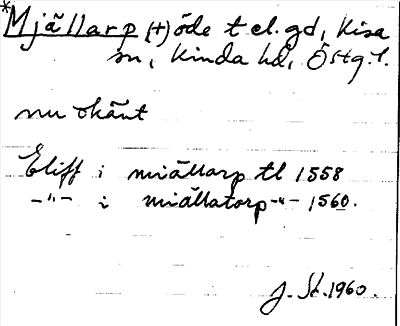 *Mjällarp (†) öde t el. gd, Kisa
sn, Kinda hd, Östg.l.
nu okänt
Eliff i miällarp tl 1558
–"– i miällatorp –"– 1560.
J. St. 1960.